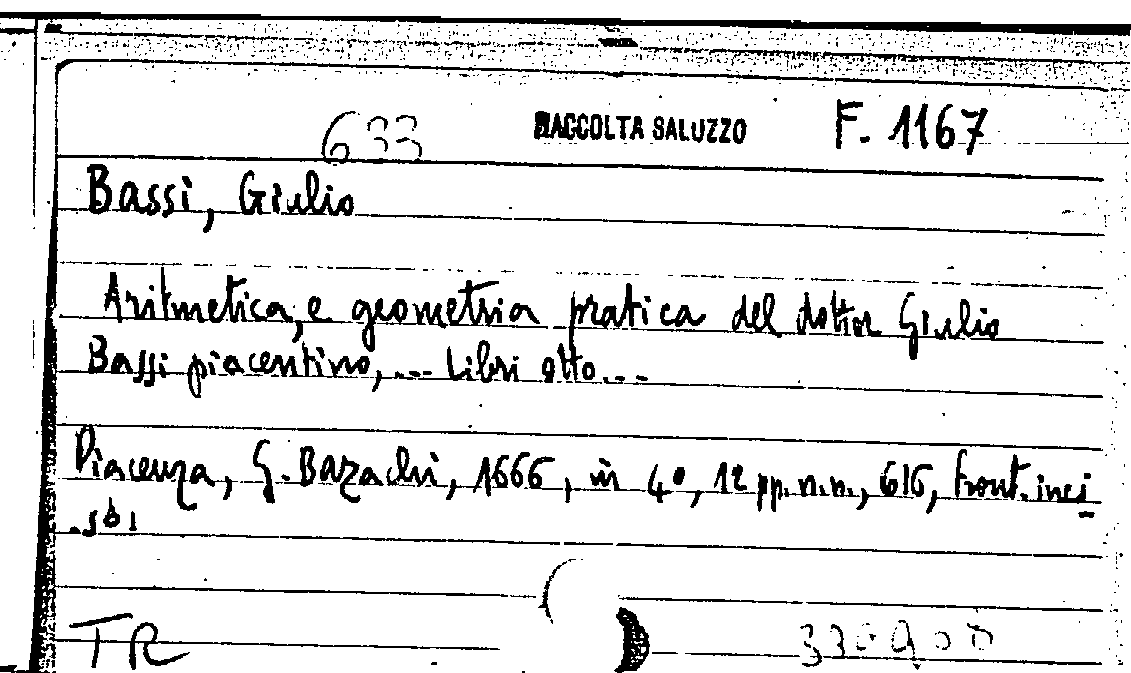 633 RACCOLTA SALUZZO F. 1167
Bassi, Giulio
Aritmetica, e geometria pratica del dottor Giulio
Bassi piacentino, ... Libri otto ...
Piacenza, G. Bazachi, 1666, in 4°, 12 pp.n.n., 616, front. inci
so;
TR